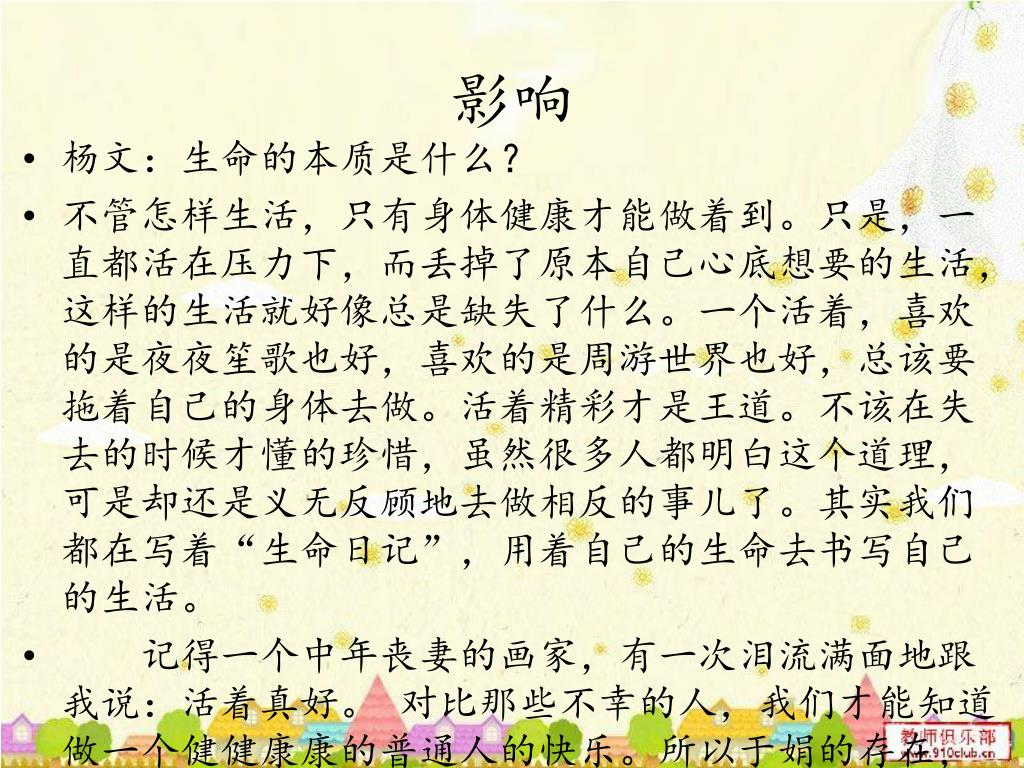 影响
• 杨文：生命的本质是什么？
• 不管怎样生活，只有身体健康才能做着到。只是，一
直都活在压力下，而丢掉了原本自己心底想要的生活，
这样的生活就好像总是缺失了什么。一个活着，喜欢
的是夜夜笙歌也好，喜欢的是周游世界也好，总该要
拖着自己的身体去做。活着精彩才是王道。不该在失
去的时候才懂的珍惜，虽然很多人都明白这个道理，
可是却还是义无反顾地去做相反的事儿了。其实我们
都在写着“生命日记”，用着自己的生命去书写自己
的生活。
• 记得一个中年丧妻的画家，有一次泪流满面地跟
我说：活着真好。 对比那些不幸的人，我们才能知道
做一个健健康康的普通人的快乐。所以于娟的存在，
教师俱乐部
www.910club.cn